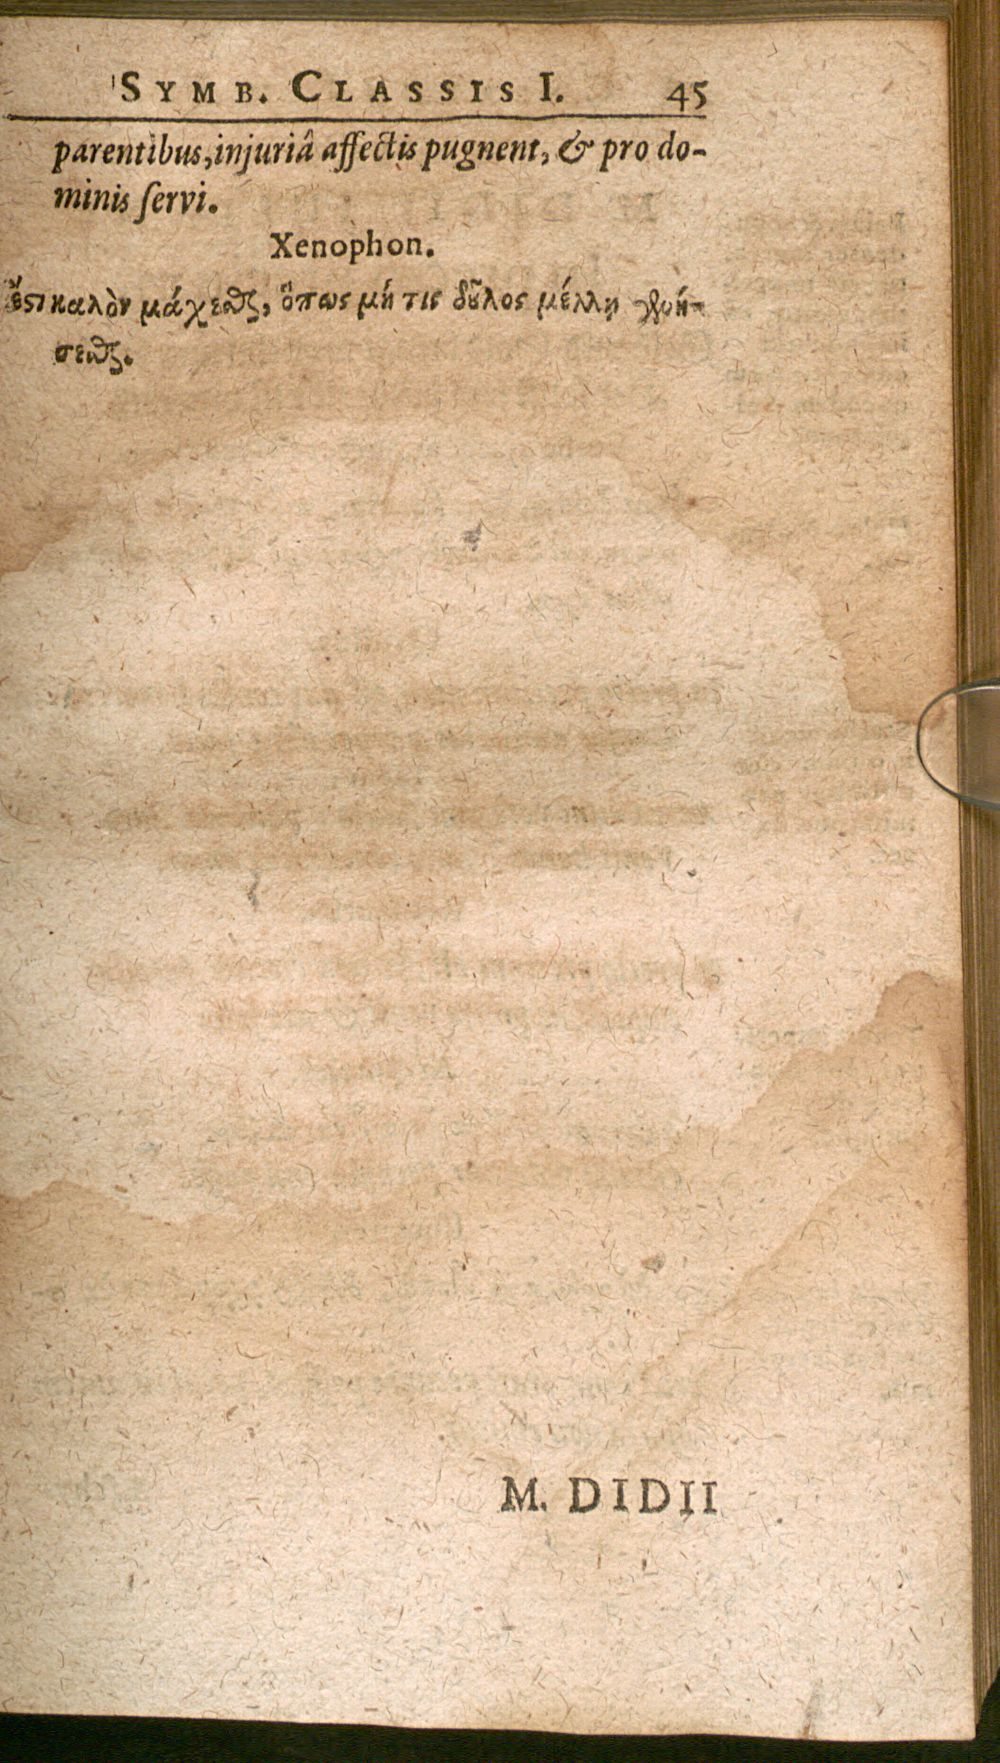 SYMB. CLASSIS I. 45
parentibus, injuriâ affectis pugnent, & pro do-
minis servi.
Xenophon.
ἔστι καλὸν μάχεσθαι, ὅπως μή τις δοῦλος μέλλῃ γενή-
σεσθαι.
M. DIDII